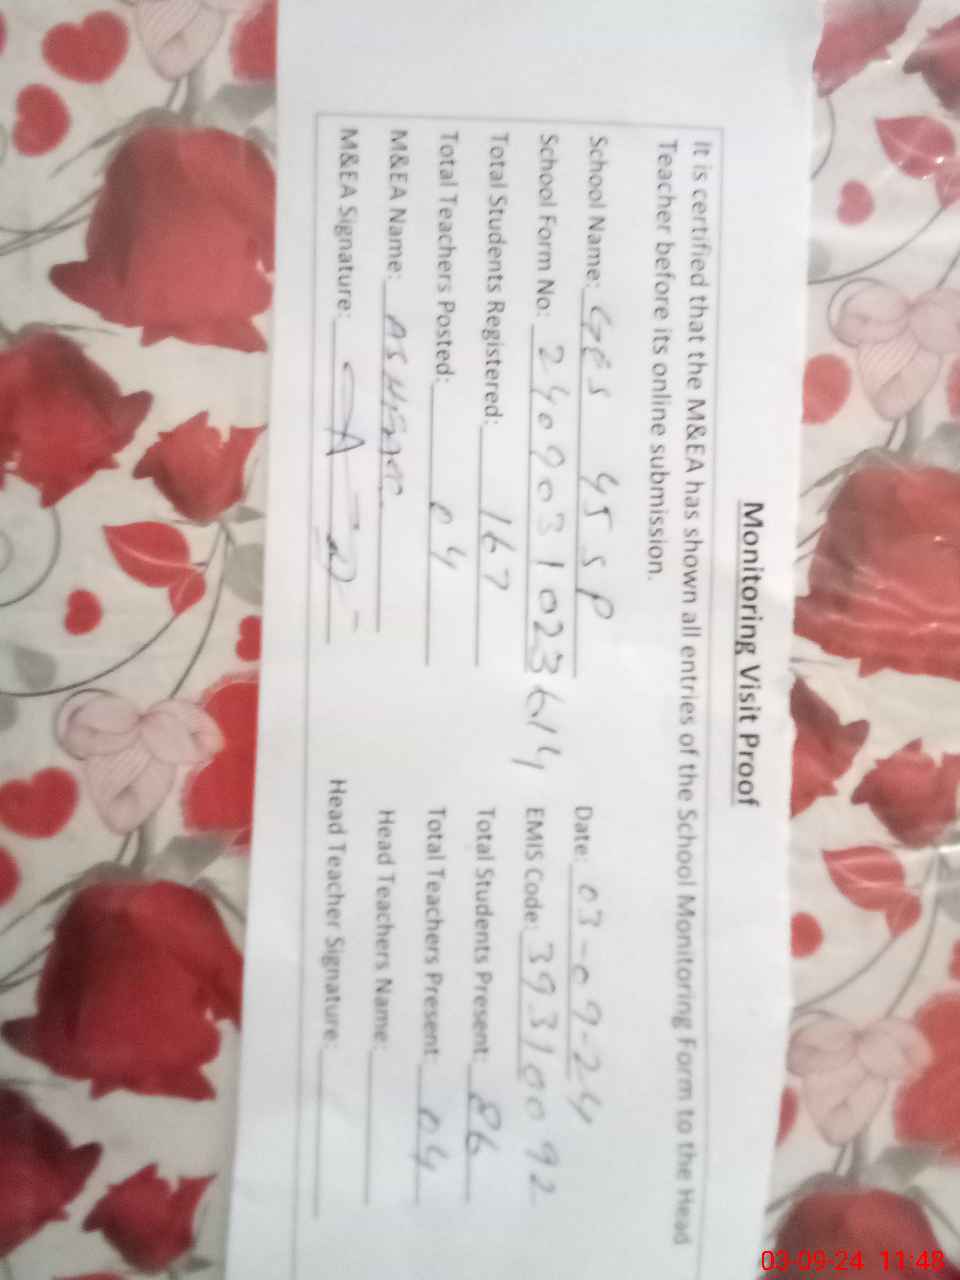 Monitoring Visit Proof
It is certified that the M&EA has shown all entries of the School Monitoring Form to the Head
Teacher before its online submission.
School Name: GPS 45 SP Date: 03-09-24
School Form No: 2409031023614 EMIS Code: 39310092
Total Students Registered: 167 Total Students Present: 86
Total Teachers Posted: 04 Total Teachers Present 04
M&EA Name: Head Teachers Name:
M&EA Signature: Head Teacher Signature:
03-09-24 11:48